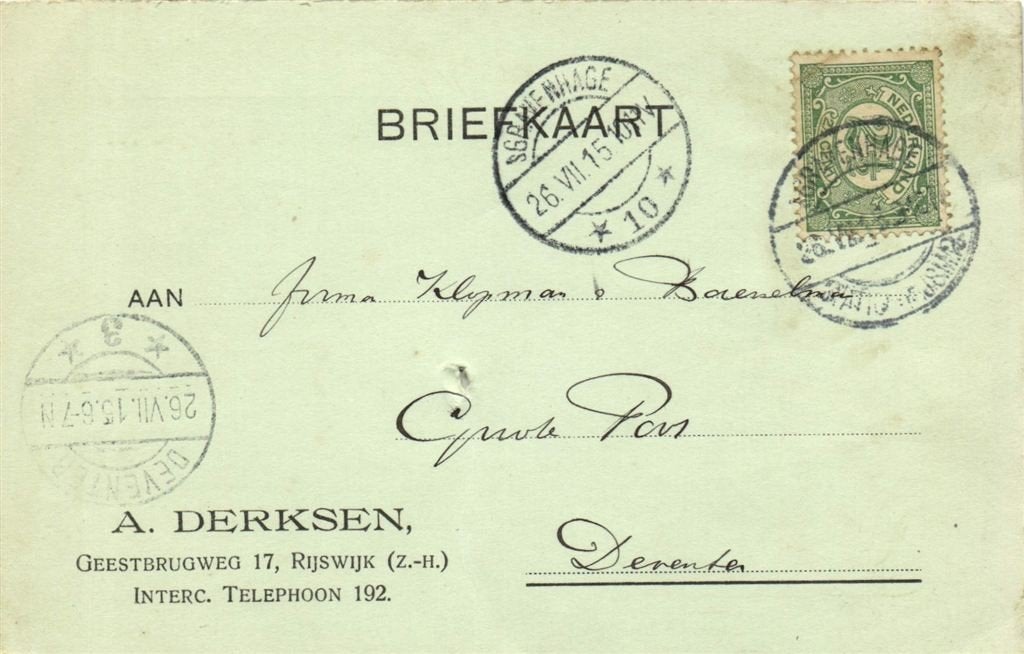 BRIEFKAART
'SGRAVENHAGE
26.VII.15 10-11V
10
NEDERLAND
2½
CENT
AAN firma Klopman & Baerselman
Grote Pos
Deventer
3
26.VII.15.6-7N
DEVENTER
A. DERKSEN,
GEESTBRUGWEG 17, RIJSWIJK (Z.-H.)
INTERC. TELEPHOON 192.